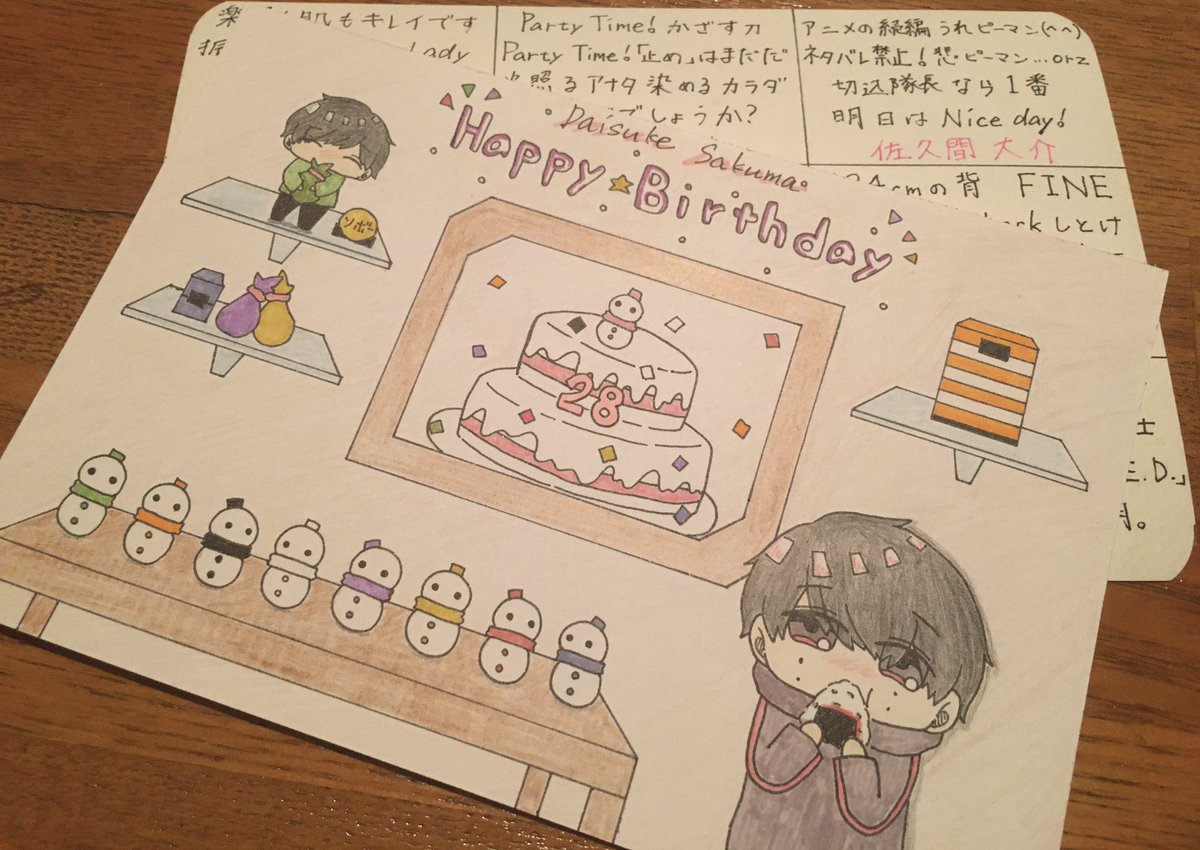 楽 肌もキレイです
折 Lady
Party Time! かざす刀
Party Time!「止め」はまだだ
照るアナタ染めるカラダ
でしょうか?
アニメの続編 うれピーマン(^^)
ネタバレ禁止! 悲ピーマン...orz
切込隊長なら1番
明日は Nice day!
佐久間 大介
cmの背 FINE
しとけ
士
E.D.」
月。
Daisuke Sakuma
Happy Birthday
ソボロ
28